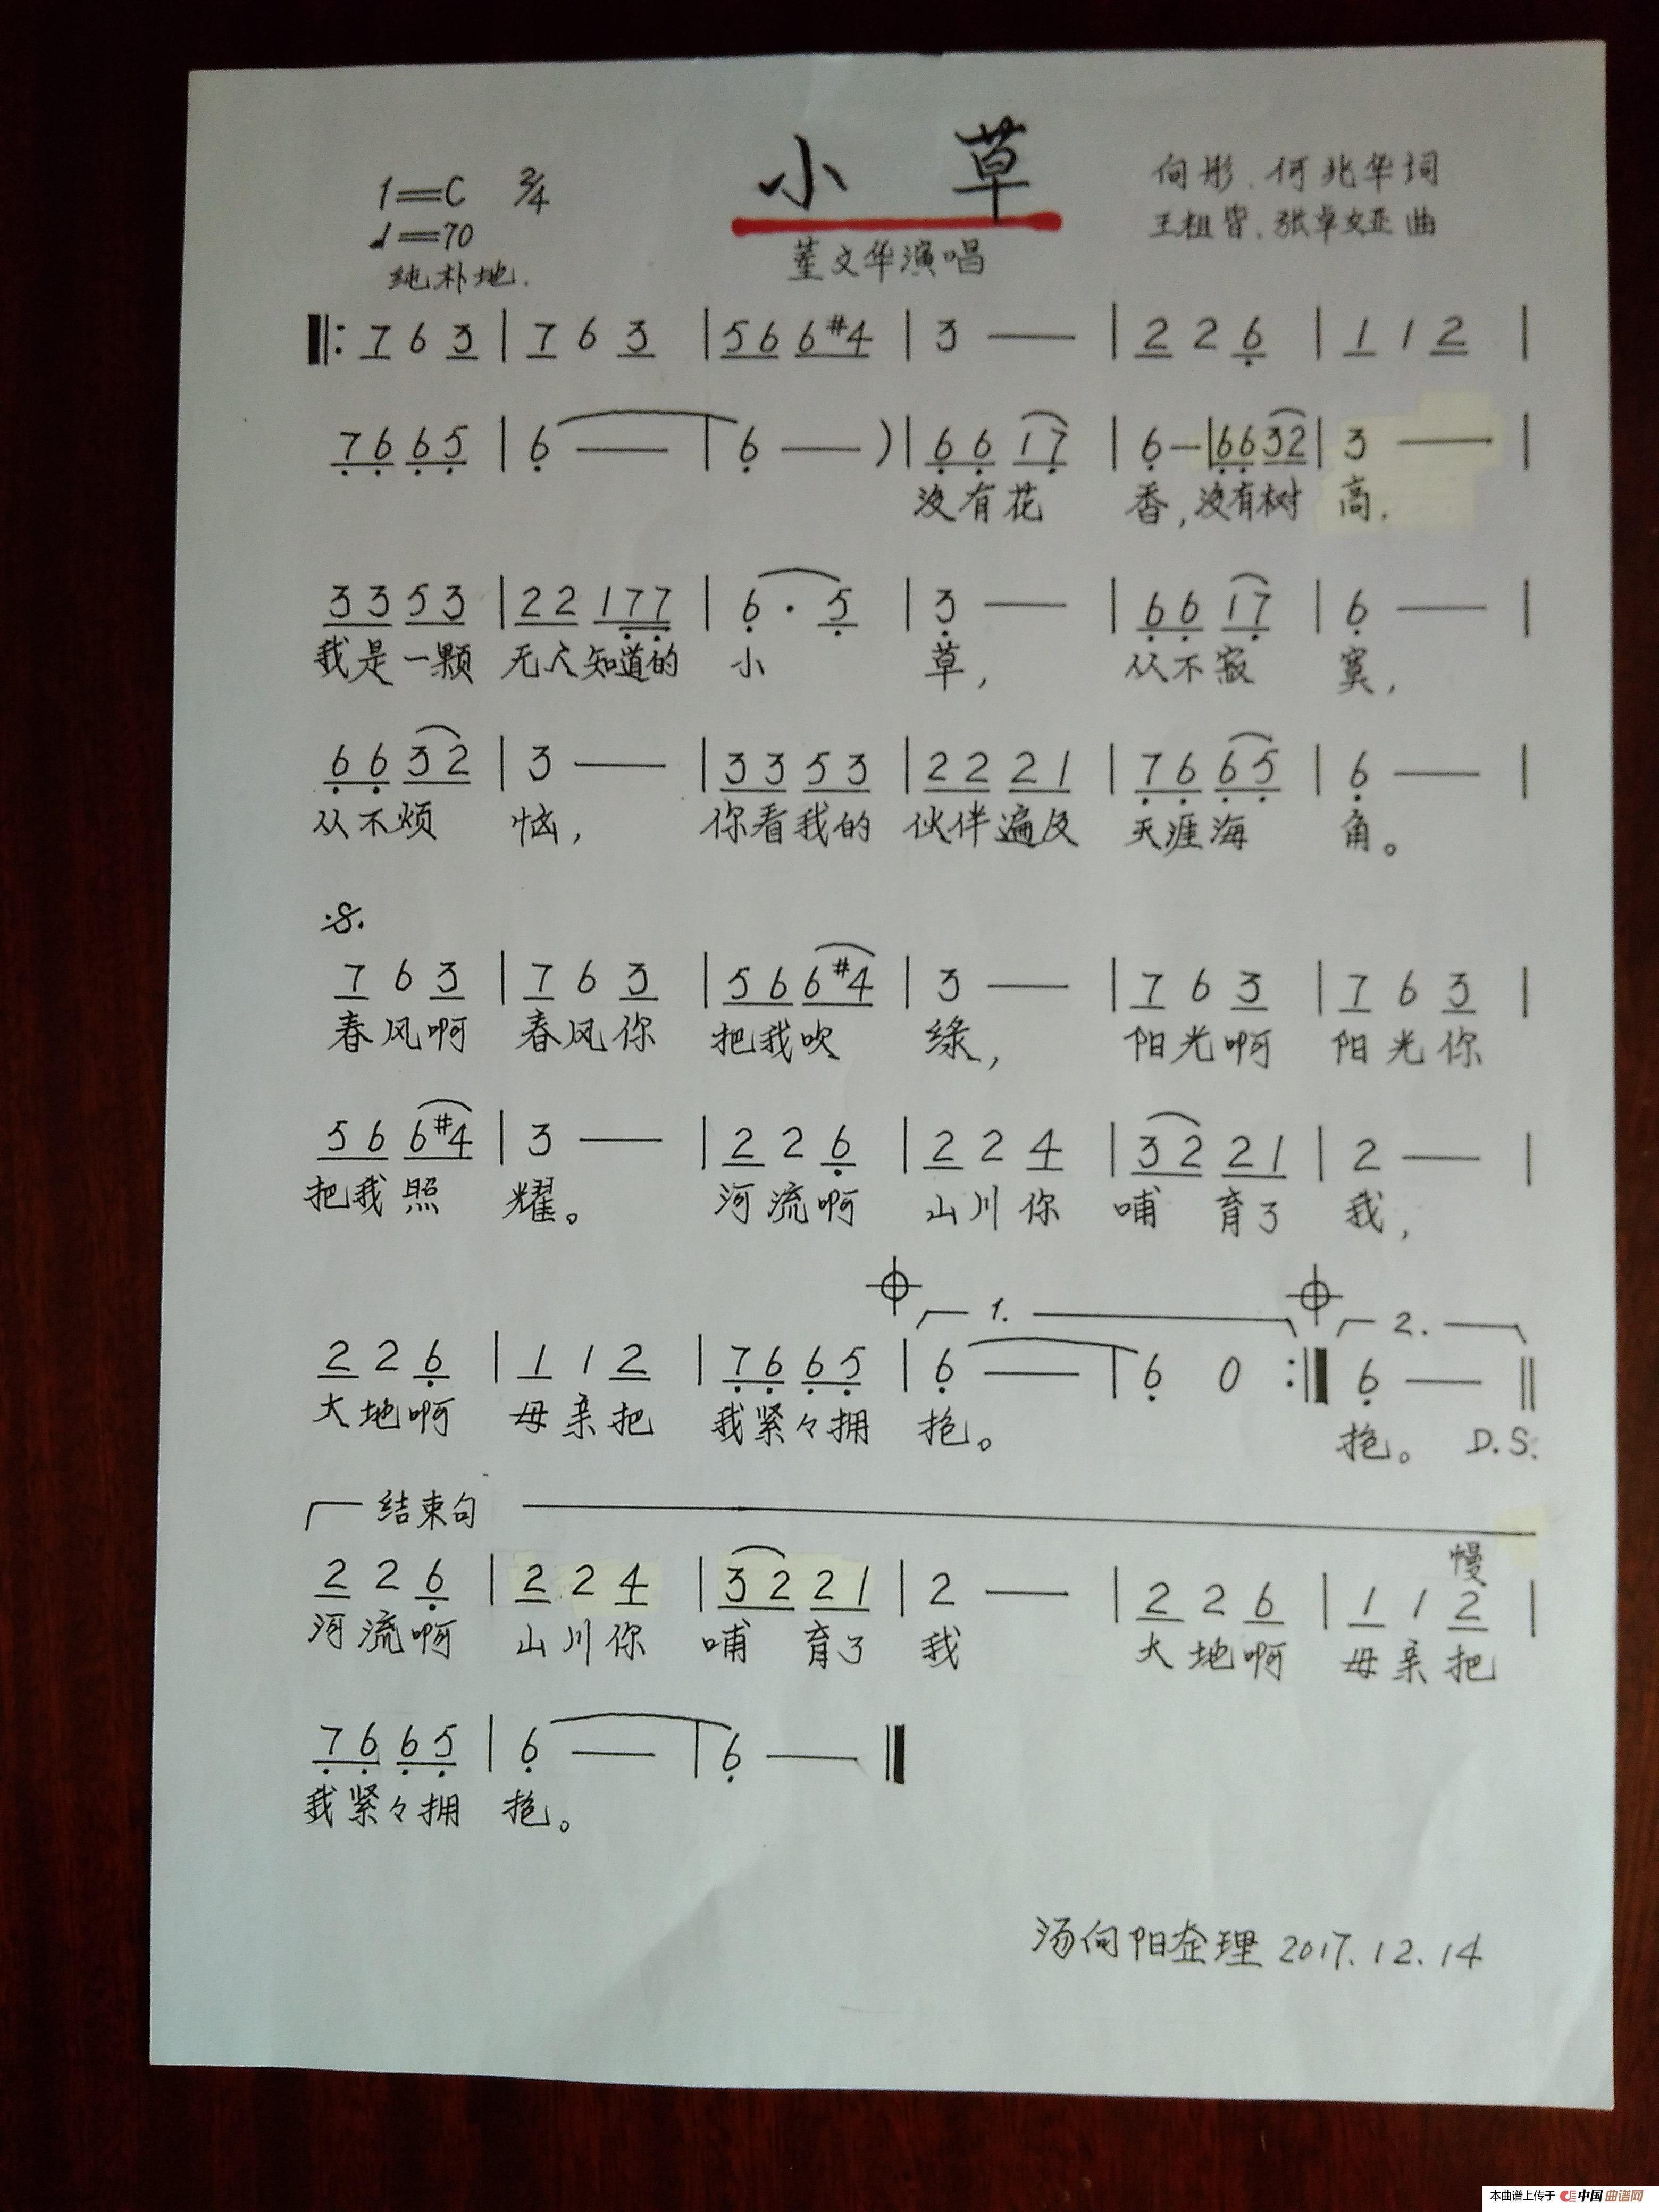 小 草
1=C 2/4
向彤.何兆华词
♩=70
王祖皆.张卓娅曲
纯朴地.
董文华演唱
‖: 7 6 3 | 7 6 3 | 5 6 6 #4 | 3 — | 2 2 6 | 1 1 2 |
7 6 6 5 | 6 — | 6 — ) | 6 6 1 7 | 6 — | 6 6 3 2 | 3 — |
没有花 香,没有树 高.
3 3 5 3 | 2 2 1 7 7 | 6 · 5 | 3 — | 6 6 1 7 | 6 — |
我是一颗 无人知道的 小 草, 从不寂 寞,
6 6 3 2 | 3 — | 3 3 5 3 | 2 2 2 1 | 7 6 6 5 | 6 — |
从不烦 恼, 你看我的 伙伴遍及 天涯海 角。
𝄋
7 6 3 | 7 6 3 | 5 6 6 #4 | 3 — | 7 6 3 | 7 6 3 |
春风啊 春风你 把我吹 绿, 阳光啊 阳光你
5 6 6 #4 | 3 — | 2 2 6 | 2 2 4 | 3 2 2 1 | 2 — |
把我照 耀。 河流啊 山川你 哺 育了 我,
𝄌 1. 𝄌 2.
2 2 6 | 1 1 2 | 7 6 6 5 | 6 — | 6 0 :‖ 6 — ‖
大地啊 母亲把 我紧々拥 抱。 抱。 D.S.
结束句
慢
2 2 6 | 2 2 4 | 3 2 2 1 | 2 — | 2 2 6 | 1 1 2 |
河流啊 山川你 哺 育了 我 大地啊 母亲把
7 6 6 5 | 6 — | 6 — ‖
我紧々拥 抱。
汤向阳整理 2017.12.14
本曲谱上传于 中国曲谱网